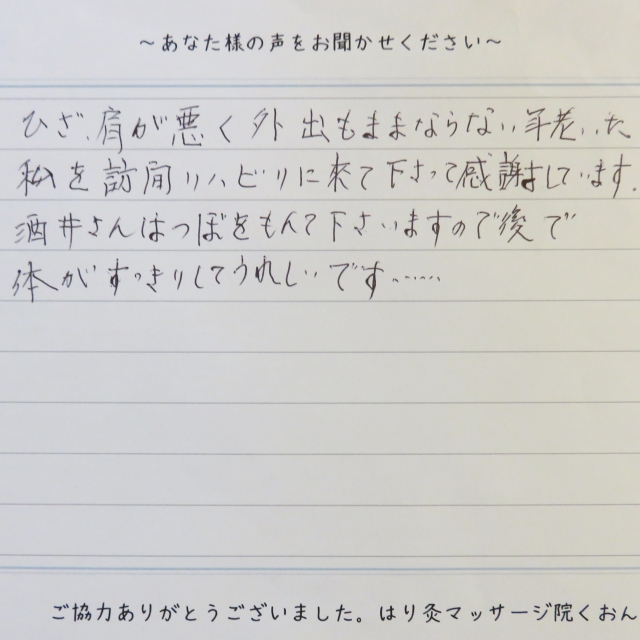 ～あなた様の声をお聞かせください～
ひざ、肩が悪く外出もままならない年老いた
私を訪問リハビリに来て下さって感謝しています.
酒井さんはつぼをもんで下さいますので後で
体がすっきりしてうれしいです……
ご協力ありがとうございました。はり灸マッサージ院くおん